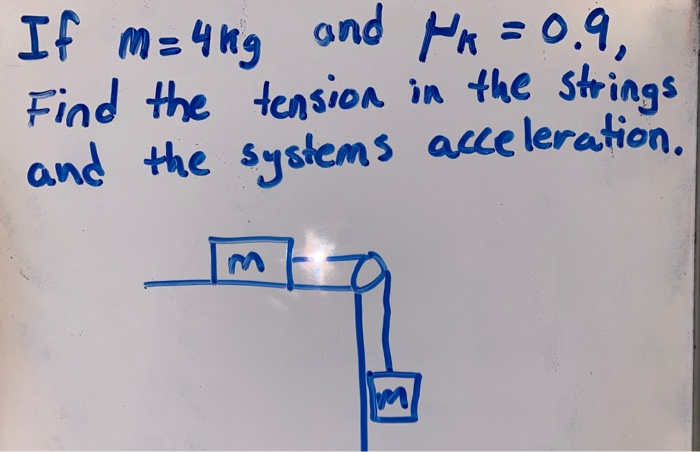 If m=4kg and μk = 0.9,
Find the tension in the strings
and the systems acceleration.
m
m